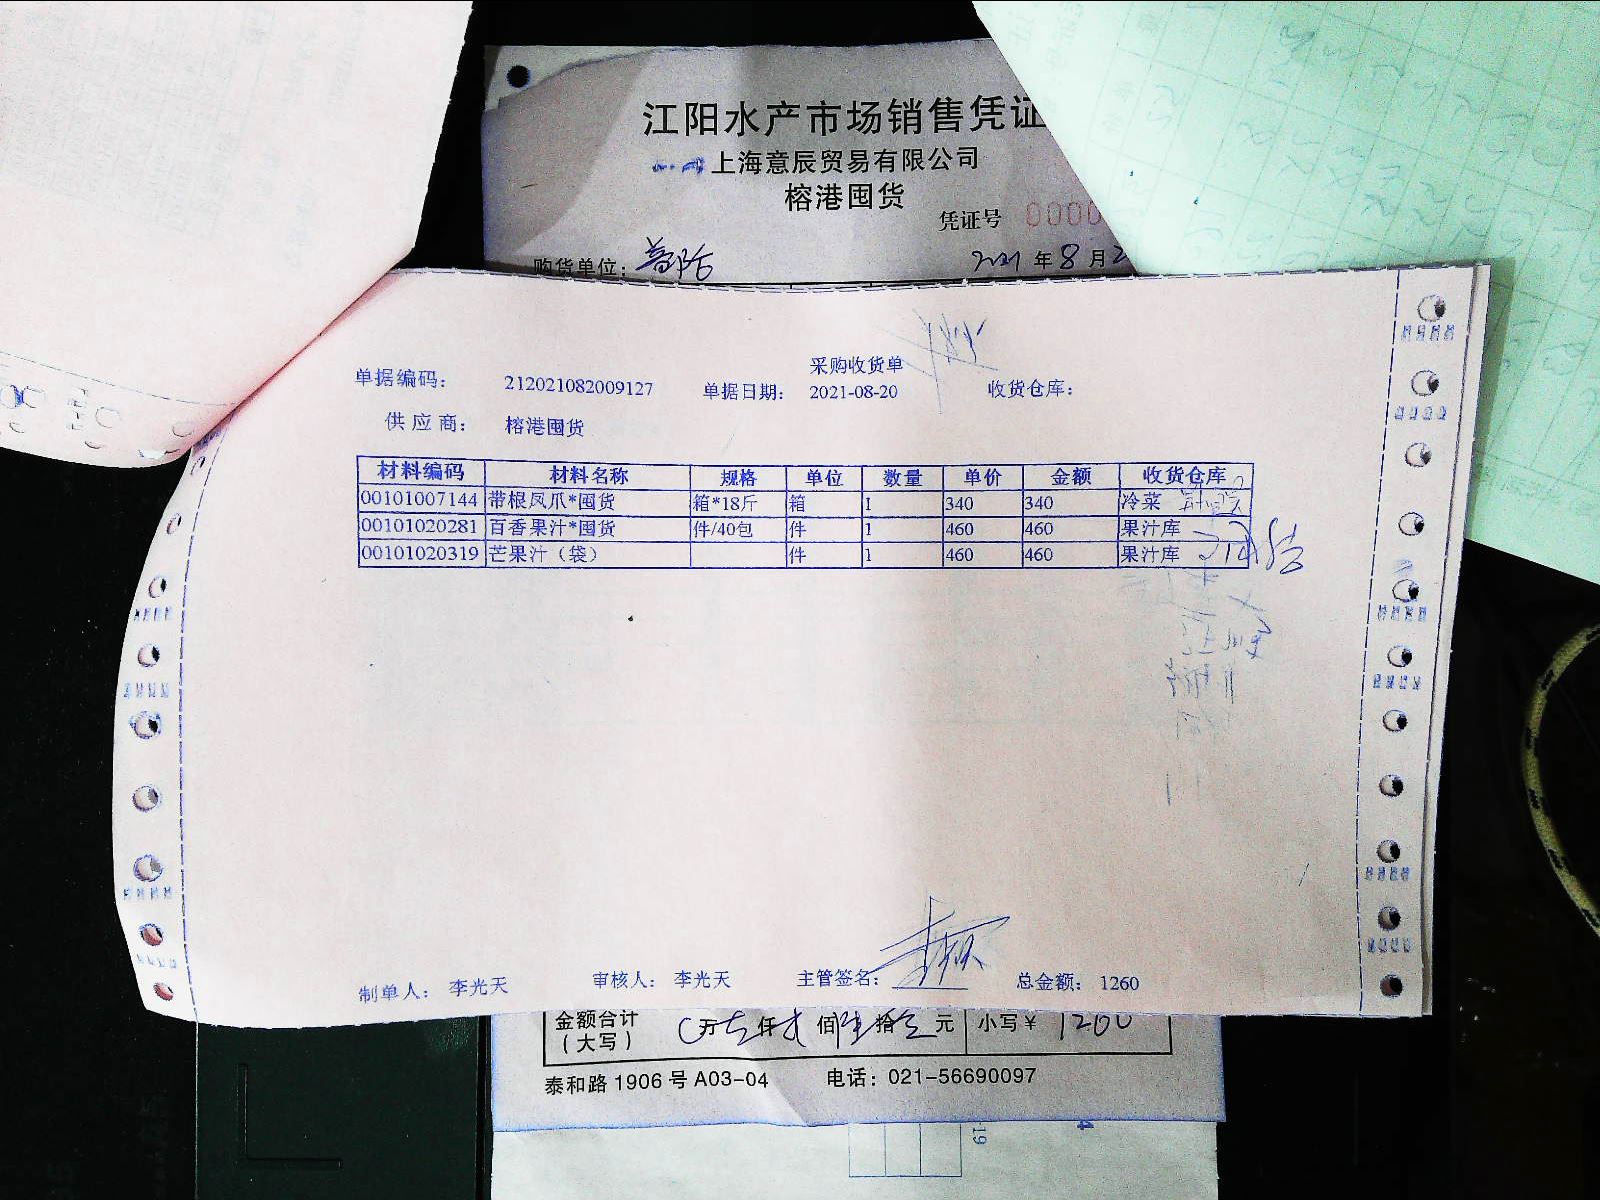 江阳水产市场销售凭证
上海意辰贸易有限公司
榕港囤货
凭证号 0000
购货单位:
2021 年 8 月 2
采购收货单
单据编码: 212021082009127 单据日期: 2021-08-20 收货仓库:
供应商: 榕港囤货
材料编码 材料名称 规格 单位 数量 单价 金额 收货仓库
00101007144 带根凤爪*囤货 箱*18斤 箱 1 340 340 冷菜
00101020281 百香果汁*囤货 件/40包 件 1 460 460 果汁库
00101020319 芒果汁（袋） 件 1 460 460 果汁库
制单人: 李光天 审核人: 李光天 主管签名: 总金额: 1260
金额合计 万 仟 佰 拾 元 小写¥ 1260
（大写）
泰和路1906号A03-04 电话: 021-56690097